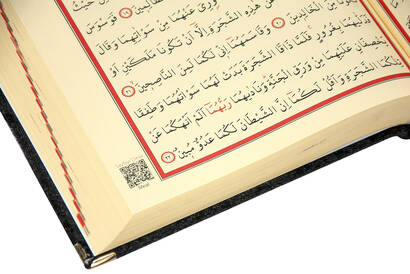 حَيْثُ
فَوَسْوَسَ
وُرِيَ عَنْهُمَا مِنْ سَوْاٰتِهِمَا وَقَالَ
هٰذِهِ الشَّجَرَةِ اِلَّٓا اَنْ تَكُونَا مَلَكَيْنِ اَوْ
مِنَ الْخَالِدٖينَ ٢٠ وَقَاسَمَهُمَٓا اِنّٖي لَكُمَا لَمِنَ النَّاصِحٖينَ ٢١
فَدَلّٰيهُمَا بِغُرُورٍ فَلَمَّا ذَاقَا الشَّجَرَةَ بَدَتْ لَهُمَا سَوْاٰتُهُمَا وَطَفِقَا
يَخْصِفَانِ عَلَيْهِمَا مِنْ وَرَقِ الْجَنَّةِ وَنَادٰيهُمَا رَبُّهُمَٓا اَلَمْ اَنْهَكُمَا عَنْ
تِلْكُمَا الشَّجَرَةِ وَاَقُلْ لَكُمَٓا اِنَّ الشَّيْطَانَ لَكُمَا عَدُوٌّ مُبٖينٌ ٢٢